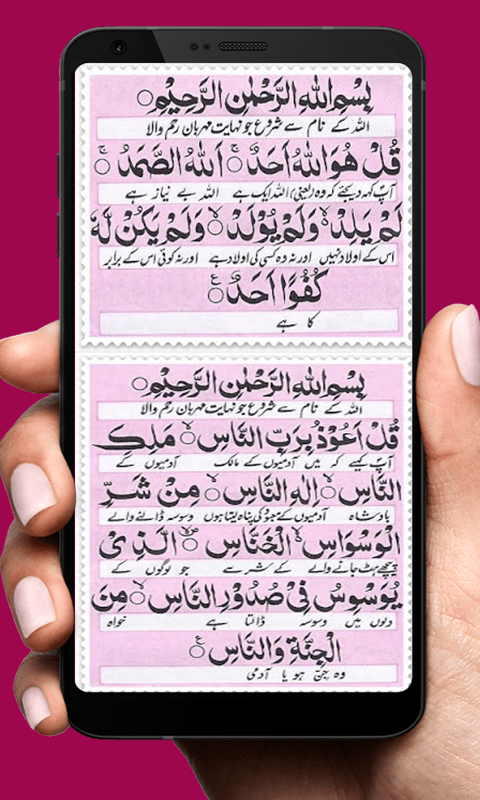 بِسْمِ اللّٰهِ الرَّحْمٰنِ الرَّحِیْمِ ○
اللہ کے نام سے شروع جو نہایت مہربان رحم والا
قُلْ هُوَ اللّٰهُ اَحَدٌ ۚ○ اَللّٰهُ الصَّمَدُ ۚ○
آپ کہہ دیجئے کہ وہ (یعنی) اللہ ایک ہے اللہ بے نیاز ہے
لَمْ یَلِدْ ۙ۬○ وَلَمْ یُوْلَدْ ۙ○ وَلَمْ یَكُنْ لَّهٗ
اس کے اولاد نہیں اور نہ وہ کسی کی اولاد ہے اور نہ کوئی اس کے برابر
كُفُوًا اَحَدٌ ۧ○
کا ہے
بِسْمِ اللّٰهِ الرَّحْمٰنِ الرَّحِیْمِ ○
اللہ کے نام سے شروع جو نہایت مہربان رحم والا
قُلْ اَعُوْذُ بِرَبِّ النَّاسِ ۙ○ مَلِكِ
آپ کہیے کہ میں آدمیوں کے مالک آدمیوں کے
النَّاسِ ۙ○ اِلٰهِ النَّاسِ ۙ○ مِنْ شَرِّ
بادشاہ آدمیوں کے معبود کی پناہ لیتا ہوں وسوسہ ڈالنے والے
الْوَسْوَاسِ ۙ۬ الْخَنَّاسِ ۙ○ الَّذِیْ
پیچھے ہٹ جانے والے کے شر سے جو لوگوں کے
یُوَسْوِسُ فِیْ صُدُوْرِ النَّاسِ ۙ○ مِنَ
دلوں میں وسوسہ ڈالتا ہے خواہ
الْجِنَّةِ وَالنَّاسِ ۧ○
وہ جن ہو یا آدمی